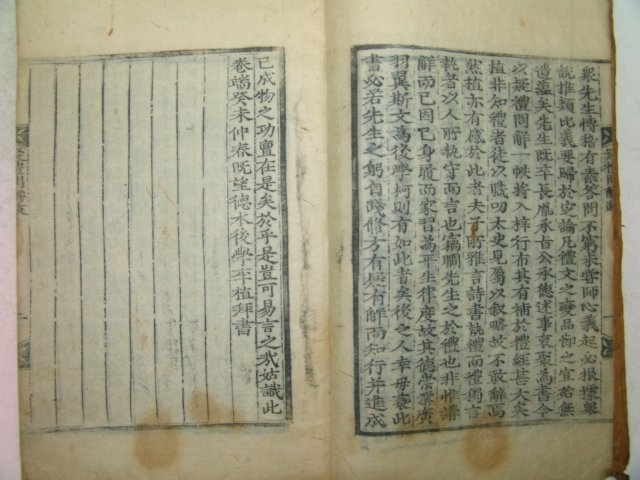 衆先生博搉有素答問不窮未嘗師心義起必根據與
說推類比義要歸於定論凡禮文之變品節之宜殆無
遺蘊矣先生旣卒長胤承旨公承德述事裒稡爲書令
以疑禮問解一帙將入梓行布其有補於禮經甚大矣
植非知禮者徒以職叨太史見屬以叙略故不敢辭焉
然植亦有感於此者夫子所雅言詩書執禮而禮獨言
執者以人所執守而言也竊覵先生之於禮也非惟講
解而已因己身履而家習爲平生律度故其德崇業廣
羽翼斯文爲後學柯則有如此者矣後之人幸毋褻此
書必若先生之躬自踐修方有疑有解而知行幷造成
已成物之功亶在是矣於乎是豈可易言之哉姑識此
卷端癸未仲春旣望德水後學李植拜書